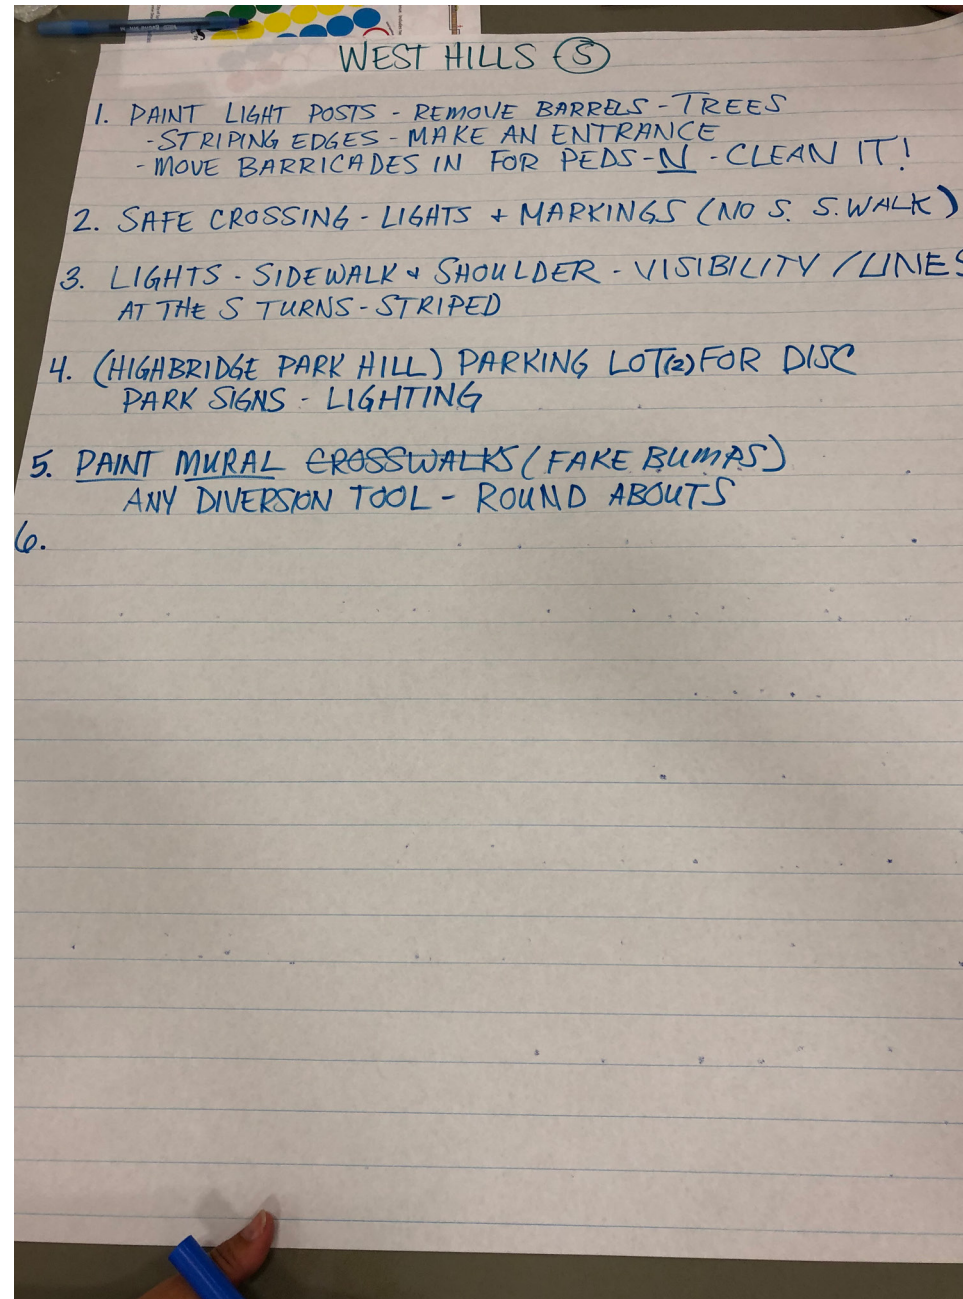 WEST HILLS (5)
1. PAINT LIGHT POSTS - REMOVE BARRELS - TREES
- STRIPING EDGES - MAKE AN ENTRANCE
- MOVE BARRICADES IN FOR PEDS - N - CLEAN IT!
2. SAFE CROSSING - LIGHTS + MARKINGS (NO S. S.WALK)
3. LIGHTS - SIDEWALK & SHOULDER - VISIBILITY / LINES
AT THE S TURNS - STRIPED
4. (HIGHBRIDGE PARK HILL) PARKING LOT(2) FOR DISC
PARK SIGNS - LIGHTING
5. PAINT MURAL CROSSWALKS (FAKE BUMPS)
ANY DIVERSION TOOL - ROUND ABOUTS
6.